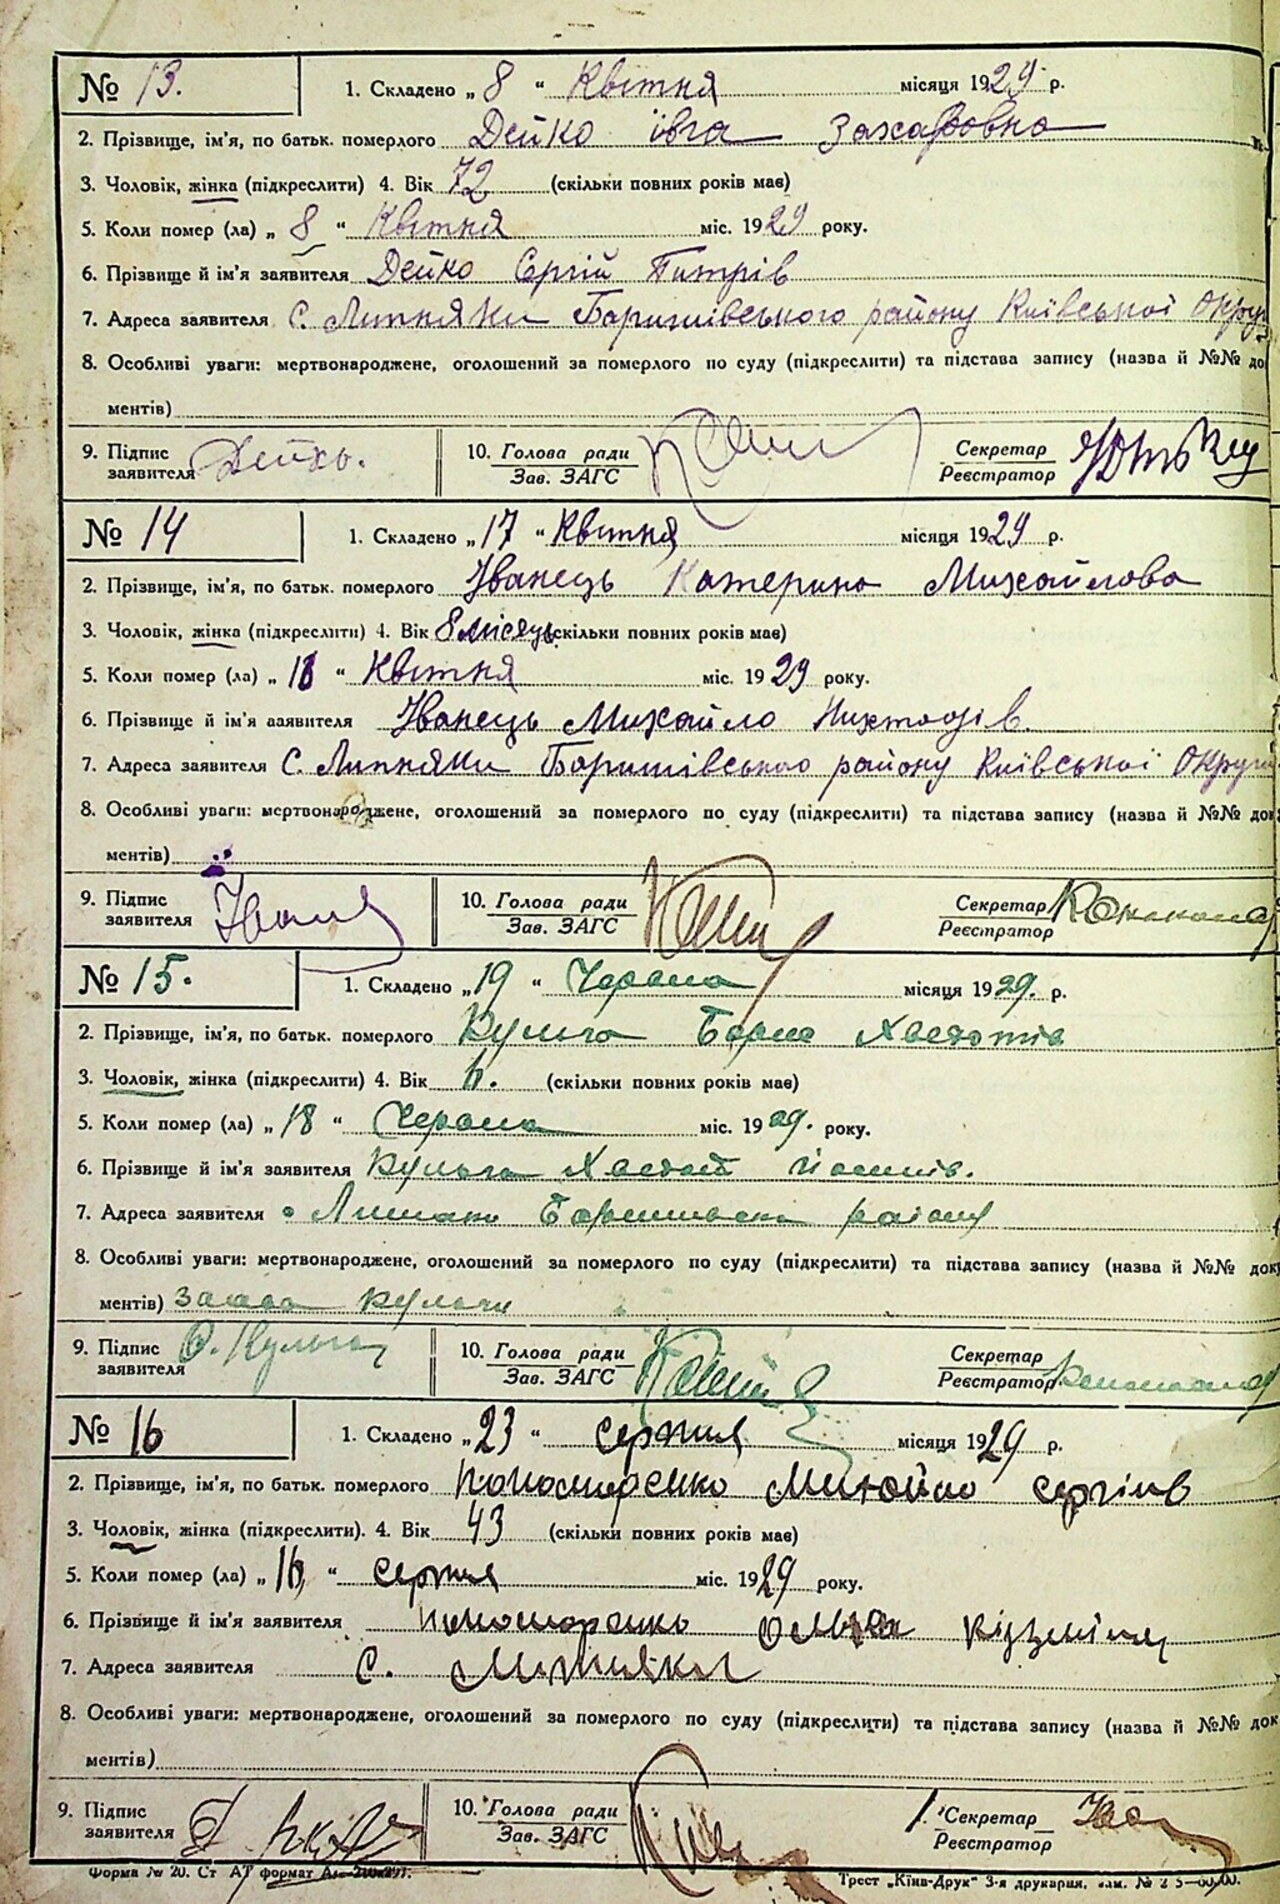 № 13. 1. Складено „ 8 “ Квітня місяця 1929 р.
2. Прізвище, ім'я, по батьк. померлого Дейко Івга Захаровна
3. Чоловік, жінка (підкреслити) 4. Вік 72 (скільки повних років має)
5. Коли помер (ла) „ 8 “ Квітня міс. 1929 року.
6. Прізвище й ім'я заявителя Дейко Сергій Питрів
7. Адреса заявителя С. Липняки Баришівського району Київської Округи
8. Особливі уваги: мертвонароджене, оголошений за померлого по суду (підкреслити) та підстава запису (назва й №№ до
ментів)
9. Підпис заявителя Дейко. 10. Голова ради Зав. ЗАГС Секретар Реєстратор
№ 14 1. Складено „ 17 “ Квітня місяця 1929 р.
2. Прізвище, ім'я, по батьк. померлого Іванець Катерина Михайлова
3. Чоловік, жінка (підкреслити) 4. Вік 8 місяць (скільки повних років має)
5. Коли помер (ла) „ 16 “ Квітня міс. 1929 року.
6. Прізвище й ім'я заявителя Іванець Михайло
7. Адреса заявителя С. Липняки Баришівського району Київської Округи
8. Особливі уваги: мертвонароджене, оголошений за померлого по суду (підкреслити) та підстава запису (назва й №№ док
ментів)
9. Підпис заявителя 10. Голова ради Зав. ЗАГС Секретар Реєстратор
№ 15. 1. Складено „ 19 “ Червня місяця 1929. р.
2. Прізвище, ім'я, по батьк. померлого Кульга Борис Хведотів
3. Чоловік, жінка (підкреслити) 4. Вік (скільки повних років має)
5. Коли помер (ла) „ 18 “ Червня міс. 1929. року.
6. Прізвище й ім'я заявителя Кульга Хведот Йосипів.
7. Адреса заявителя с Липняки району
8. Особливі уваги: мертвонароджене, оголошений за померлого по суду (підкреслити) та підстава запису (назва й №№ док
ментів) Заява Кульги
9. Підпис заявителя Кульга 10. Голова ради Зав. ЗАГС Секретар Реєстратор
№ 16 1. Складено „ 23 “ серпня місяця 1929 р.
2. Прізвище, ім'я, по батьк. померлого Пономаренко Михайло Сергіїв
3. Чоловік, жінка (підкреслити). 4. Вік 43 (скільки повних років має)
5. Коли помер (ла) „ 16 “ серпня міс. 1929 року.
6. Прізвище й ім'я заявителя Пономаренко Ольга
7. Адреса заявителя С. Липняки
8. Особливі уваги: мертвонароджене, оголошений за померлого по суду (підкреслити) та підстава запису (назва й №№ док
ментів)
9. Підпис заявителя 10. Голова ради Зав. ЗАГС Секретар Реєстратор
Форма № 20. Ст АТ формат Трест „Київ-Друк“ 3-я друкарня,